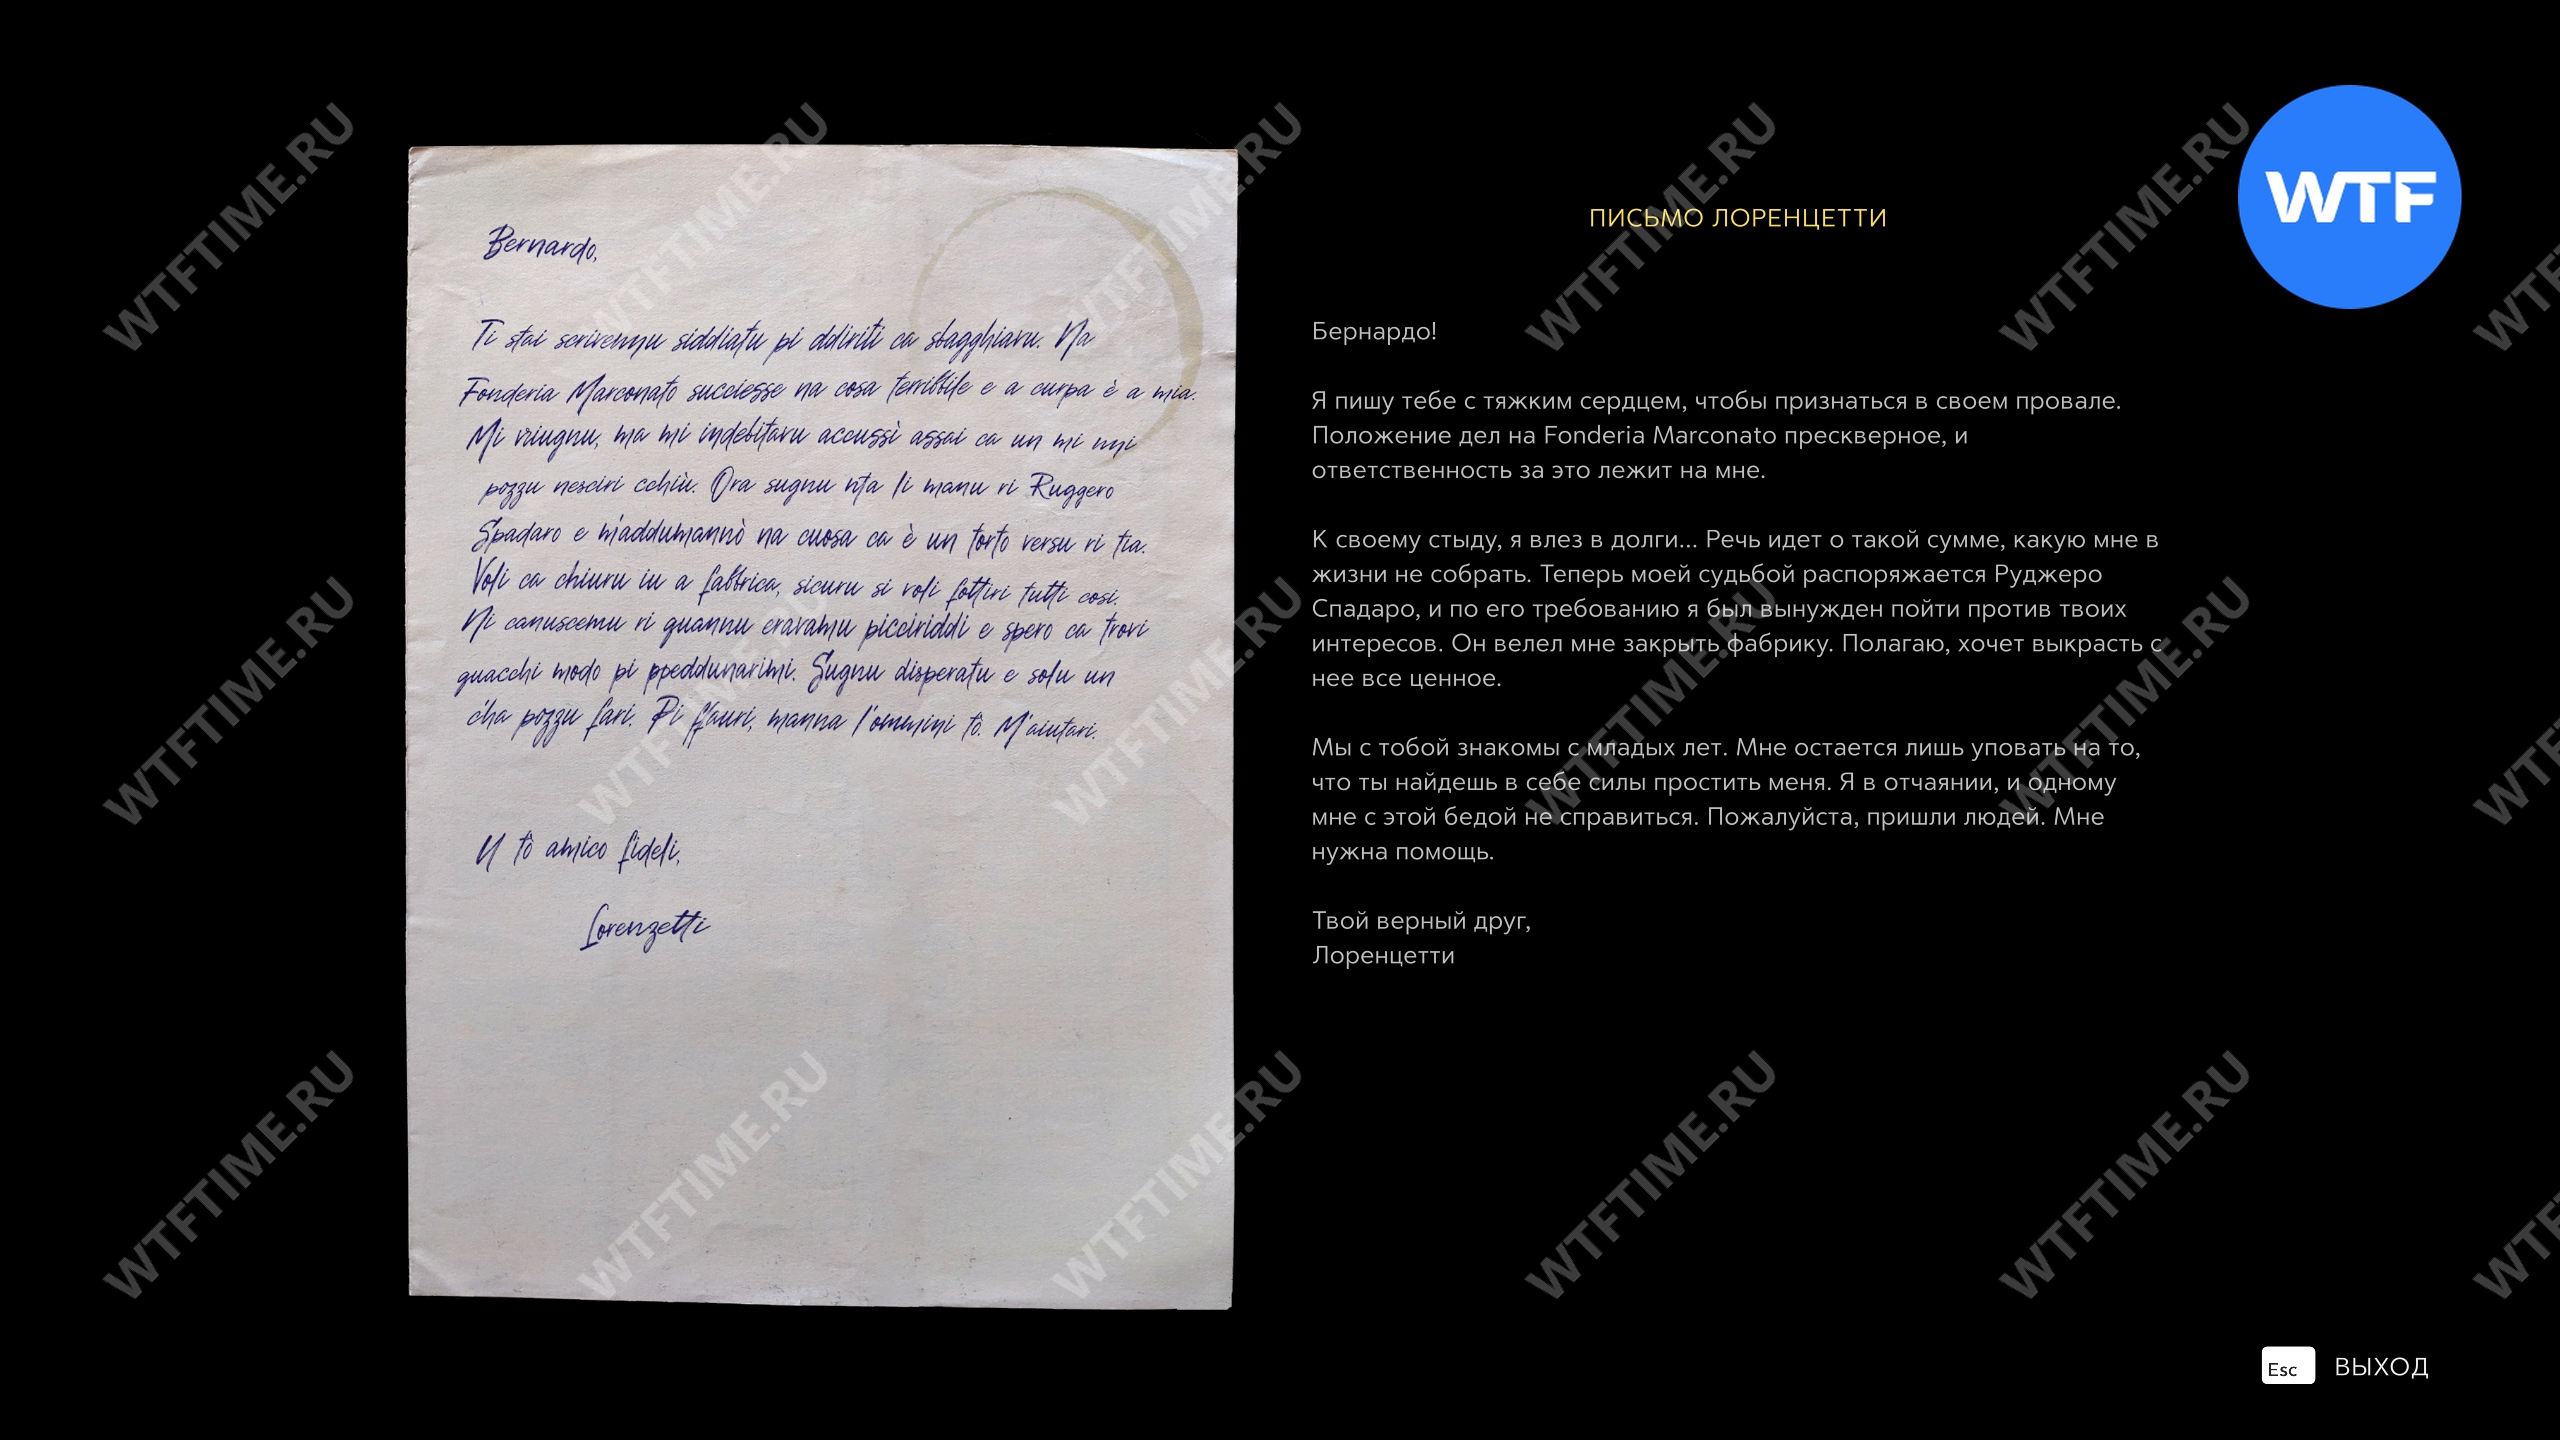 Bernardo,
Ti stai scrivennu siddiatu pi ddiriti ca sbagghiavu. Na
Fonderia Marconato succiesse na cosa terribbile e a curpa è a mia.
Mi vriugnu, ma mi indebitavu accussì assai ca un mi nni
pozzu nesciri cchiù. Ora sugnu nta li manu ri Ruggero
Spadaro e m'addumannò na cuosa ca è un torto versu ri tia.
Voli ca chiuru iu a fabbrica, sicuru si voli fottiri tutti cosi.
Ni canuscemu ri quannu eravamu picciriddi e spero ca trovi
quacchi modo pi ppeddunarimi. Sugnu disperatu e solu un
c'ha pozzu fari. Pi ffauri, manna l'ommini tò. M'aiutari.
U tò amico fideli,
Lorenzetti
ПИСЬМО ЛОРЕНЦЕТТИ
Бернардо!
Я пишу тебе с тяжким сердцем, чтобы признаться в своем провале.
Положение дел на Fonderia Marconato прескверное, и
ответственность за это лежит на мне.
К своему стыду, я влез в долги... Речь идет о такой сумме, какую мне в
жизни не собрать. Теперь моей судьбой распоряжается Руджеро
Спадаро, и по его требованию я был вынужден пойти против твоих
интересов. Он велел мне закрыть фабрику. Полагаю, хочет выкрасть с
нее все ценное.
Мы с тобой знакомы с младых лет. Мне остается лишь уповать на то,
что ты найдешь в себе силы простить меня. Я в отчаянии, и одному
мне с этой бедой не справиться. Пожалуйста, пришли людей. Мне
нужна помощь.
Твой верный друг,
Лоренцетти
WTF
Esc ВЫХОД
WTFTIME.RU